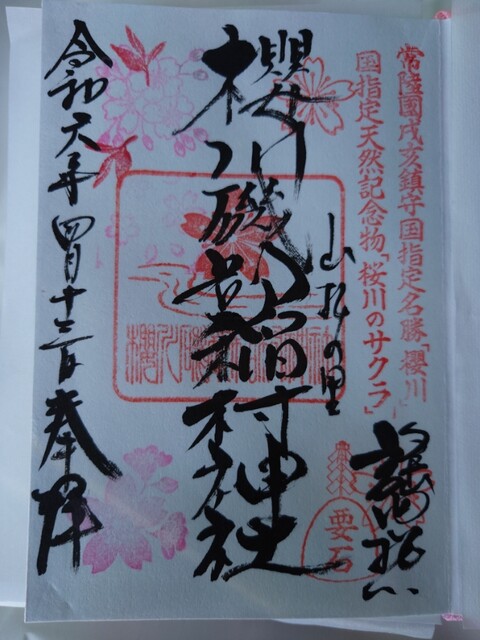 常陸國戌亥鎮守国指定名勝「櫻川」
国指定天然記念物「桜川のサクラ」
山桜の里
櫻川磯部稲村神社
要石
令和六年四月十三日
奉拝